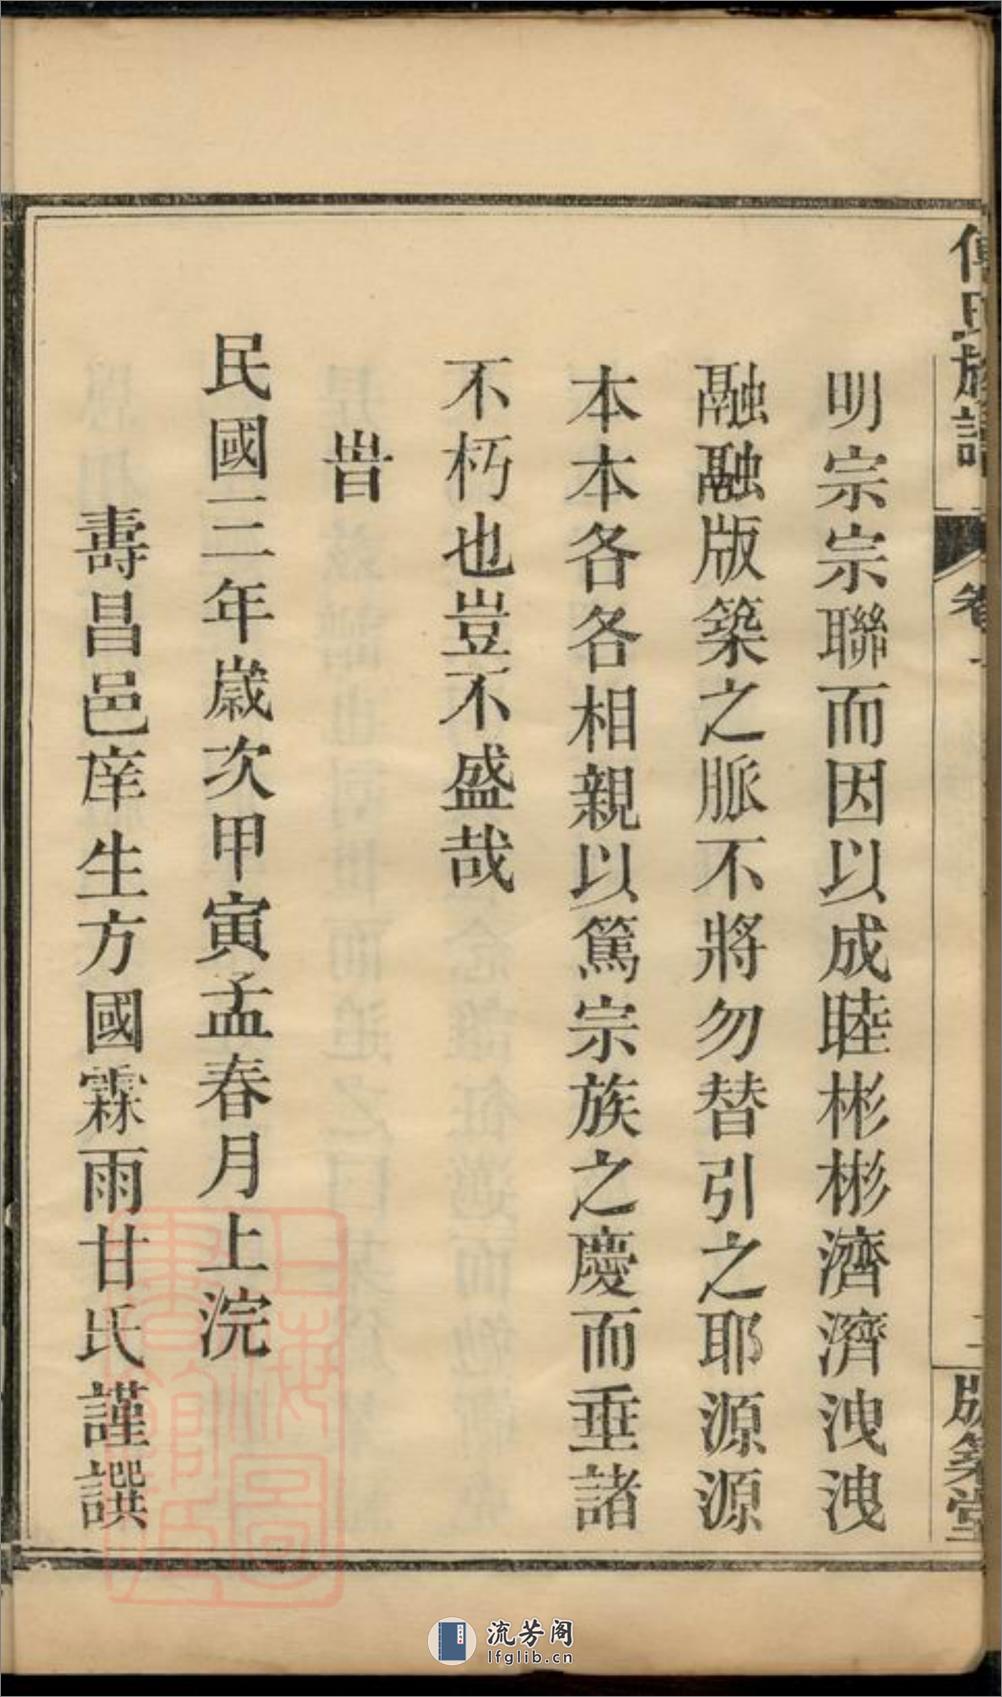 傅氏族譜
卷一
二
版築堂
明宗宗聯而因以成睦彬彬濟濟洩洩
融融版築之脈不將勿替引之耶源源
本本各各相親以篤宗族之慶而垂諸
不朽也豈不盛哉
旹
民國三年歲次甲寅孟春月上浣
壽昌邑庠生方國霖雨甘氏謹譔
上海圖書館藏
流芳阁
lfglib.cn